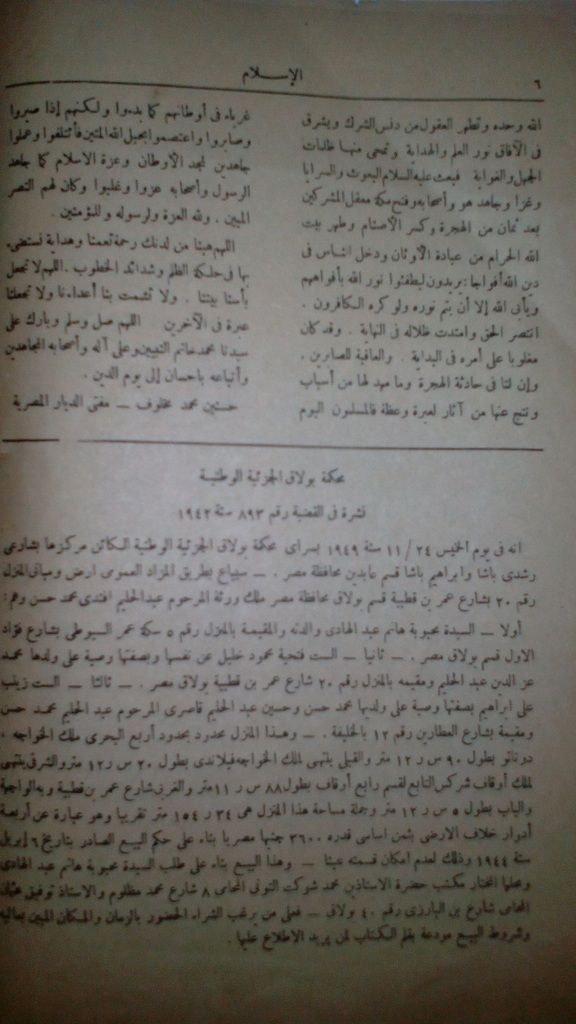 ٦
الإسلام
الله وحده وتطهر العقول من دنس الشرك ويشرق
فى الآفاق نور العلم والهداية وتمحى منها ظلمات
الجهل والغواية فبعث عليه السلام البعوث والسرايا
وغزا وجاهد هو وأصحابه وفتح مكة معقل المشركين
بعد ثمان من الهجرة وكسر الأصنام وطهر بيت
الله الحرام من عبادة الأوثان ودخل الناس فى
دين الله أفواجا : يريدون ليطفئوا نور الله بأفواههم
ويأبى الله إلا أن يتم نوره ولو كره الكافرون .
انتصر الحق وامتدت ظلاله فى النهاية . وقد كان
مغلوبا على أمره فى البداية . والعاقبة للصابرين .
وإن لنا فى حادثة الهجرة وما مهد لها من أسباب
ونتج عنها من آثار لعبرة وعظة فالمسلمون اليوم
غرباء فى أوطانهم كما بدءوا ولكنهم إذا صبروا
وصابروا واعتصموا بحبل الله المتين فأتلفوا وعملوا
جاهدين لمجد الأوطان وعزة الاسلام كما جاهد
الرسول وأصحابه عزوا وغلبوا وكان لهم النصر
المبين . ولله العزة ولرسوله وللمؤمنين .
اللهم هبنا من لدنك رحمة تعمنا وهداية نستضىء
بها فى حلكة الظلم وشدائد الخطوب . اللهم لا تجعل
بأسنا بيننا . ولا تشمت بنا أعداءنا ولا تجعلنا
عبرة فى الآخرين اللهم صل وسلم وبارك على
سيدنا محمد خاتم النبيين وعلى آله وأصحابه المجاهدين
وأتباعه باحسان إلى يوم الدين .
حسنين محمد مخلوف — مفتى الديار المصرية
محكمة بولاق الجزئية الوطنية
نشرة فى القضية رقم ٨٩٣ سنة ١٩٤٢
انه فى يوم الخميس ٢٤ / ١١ سنة ١٩٤٩ بسراى محكمة بولاق الجزئية الوطنية الكائن مركزها بشارعى
رشدى باشا وابراهيم باشا قسم عابدين محافظة مصر . — سيباع بطريق المزاد العمومى ارض ومبانى المنزل
رقم ٢٠ بشارع عمر بن قطبية قسم بولاق محافظة مصر ملك ورثة المرحوم عبد الحليم افندى محمد حسن وهم :
أولا — السيدة محبوبة هانم عبد الهادى والدته والمقيمة بالمنزل رقم ٥ سكة عمر السيوطى بشارع فؤاد
الاول قسم بولاق مصر . — ثانيا — الست فتحية محمود خليل عن نفسها وبصفتها وصية على ولدها محمد
عز الدين عبد الحليم ومقيمه بالمنزل رقم ٢٠ شارع عمر بن قطبية بولاق مصر . — ثالثا — الست زينب
على ابراهيم بصفتها وصية على ولديها محمد حسن وحسين عبد الحليم قاصرى المرحوم عبد الحليم محمد حسن
ومقيمة بشارع العطارين رقم ١٢ بالخليفة . — وهذا المنزل محدود بحدود أربع البحرى ملك الخواجه .
دوناتو بطول ٩٠ س ر ١٢ متر والقبلى ينتهى لملك الخواجه فيلاندى بطول ٢٠ س ر ١٢ متر والشرقى ينتهى
لملك أوقاف شركس التابع لقسم رابع أوقاف بطول ٨٨ س ر ١١ متر والغربى شارع عمر بن قطبية وبه الواجهة
والباب بطول ٥ س ر ١٢ متر وجملة مساحة هذا المنزل هى ٣٤ ر ١٥٤ متر تقريبا وهو عبارة عن أربعة
أدوار خلاف الارضى بثمن اساسى قدره ٣٦٠٠ جنيها مصريا بناء على حكم البيع الصادر بتاريخ ٦ إبريل
سنة ١٩٤٤ وذلك لعدم امكان قسمته عينا — وهذا البيع بناء على طلب السيدة محبوبة هانم عبد الهادى
ومحلها المختار مكتب حضرة الاستاذين محمد شوكت التونى المحامى ٨ شارع محمد مظلوم والاستاذ توفيق
المحامى شارع بن البارزى رقم ٤٠ بولاق — فعلى من يرغب الشراء الحضور بالزمان والمكان المبين بعاليه
وشروط البيع مودعة بقلم الكتاب لمن يريد الاطلاع عليها .